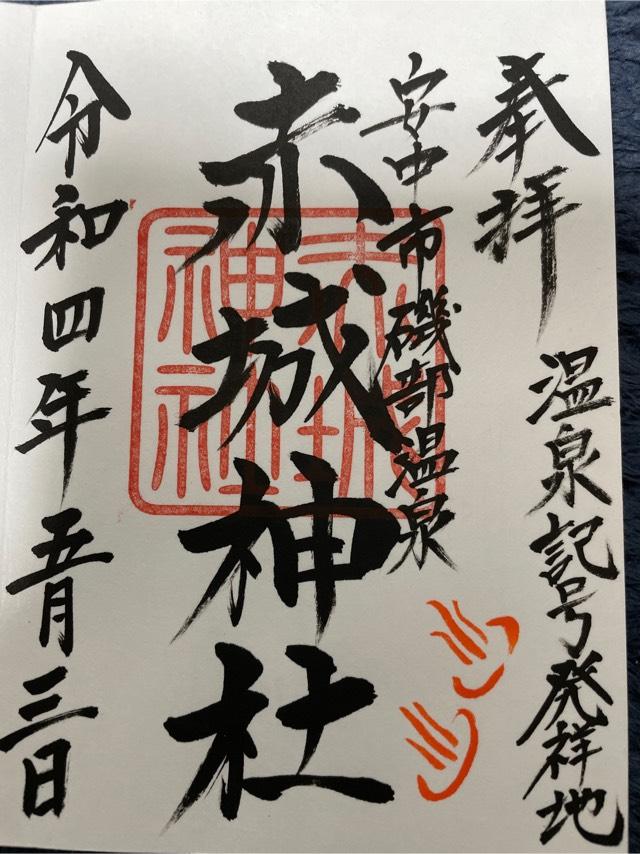 奉拝
温泉記号発祥地
安中市磯部温泉
赤城神社
赤城神社
令和四年五月三日